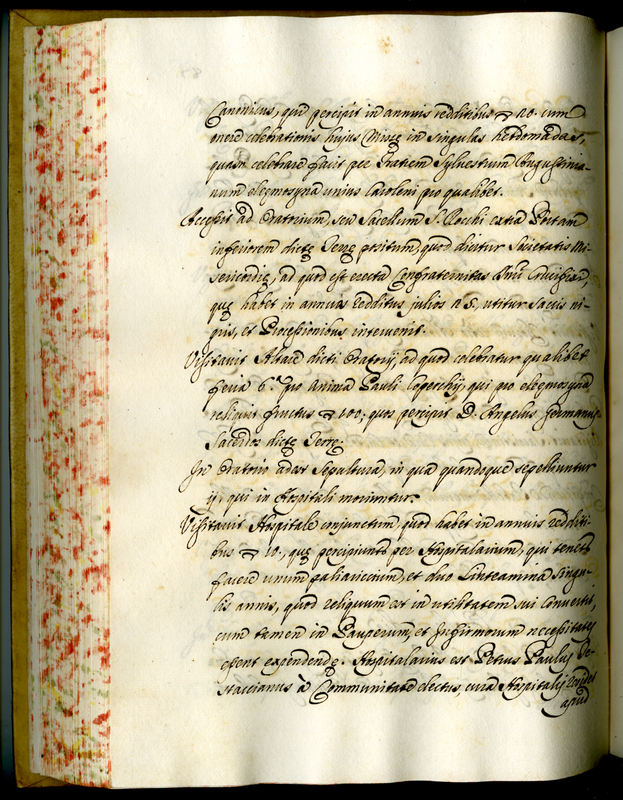 Canonicus, qui percipit in annuis redditibus ▽ 20. cum
onere celebrationis hujus Missę in singulas hebdomadas,
quam celebrare facit per Fratrem Sylvestrum Augustinia-
num elęmosyna unius Caroleni pro qualibet.
Accessit ad Oratorium, seu Sacellum S. Rocchi extra Portam
inferiorem dictę Terrę positum, quod dicitur Societatis Mi-
sericordię, ad quod est erecta Confraternitas SSmi Crucifixi,
quę habet in annuos redditus julios n. 5. utitur Saccis ni-
gris, et Processionibus intervenit.
Visitavit Altare dicti Oratorij, ad quod celebratur qualibet
feria 6.a pro Anima Pauli, qui pro elęmosyna
reliquit fructus ▽ 100, quos percipit D. Angelus Germanus
Sacerdos dictę Terrę.
In Oratorio adest Sepultura, in qua quandoque sepelliuntur
ij, qui in Hospitali moriuntur.
Visitavit Hospitale conjunctum, quod habet in annuis redditi-
bus ▽ 10., quę percipiunt per Hospitalarium, qui tenet
facere unum paliaricium, et duo Linteamina singu-
lis annis, quod reliquum est in utilitatem sui convertit,
cum tamen in Pauperum, et Infirmorum necessitates
essent expendendę. Hospitalarius est Petrus Paulus
à Communitate electus, cura Hospitalis residet
apud